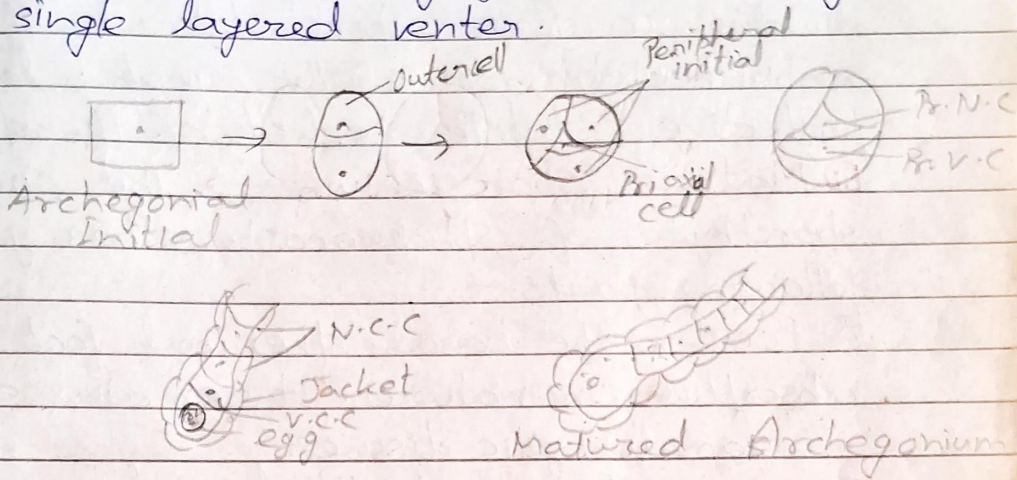 single layered venter.
outercell
Peripheral
initial
Pr. N. C
Pr. V. C.
Pri axial
cell
Archegonial
Initial
N.C-C
Jacket
V.C.C
egg
Matured Archegonium